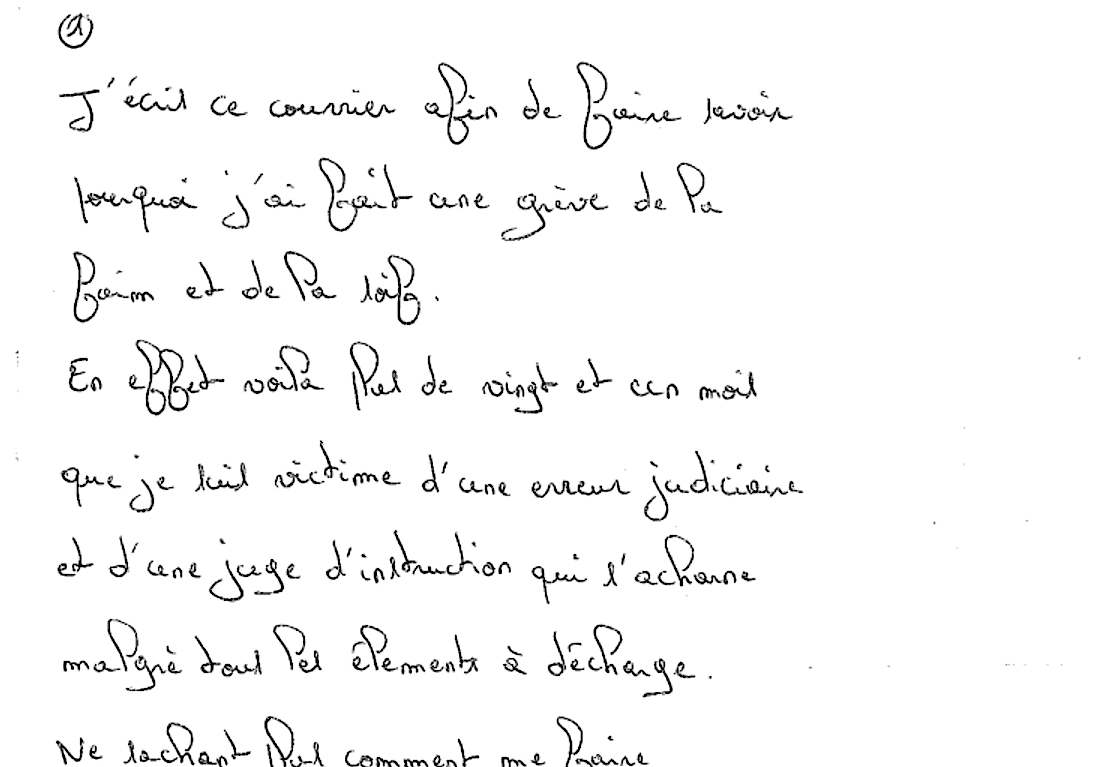 1
J'écris ce courrier afin de faire savoir
pourquoi j'ai fait une grève de la
faim et de la soif.
En effet voilà plus de vingt et un mois
que je suis victime d'une erreur judiciaire
et d'une juge d'instruction qui s'acharne
malgrè tous les élements à décharge.
Ne sachant plus comment me faire